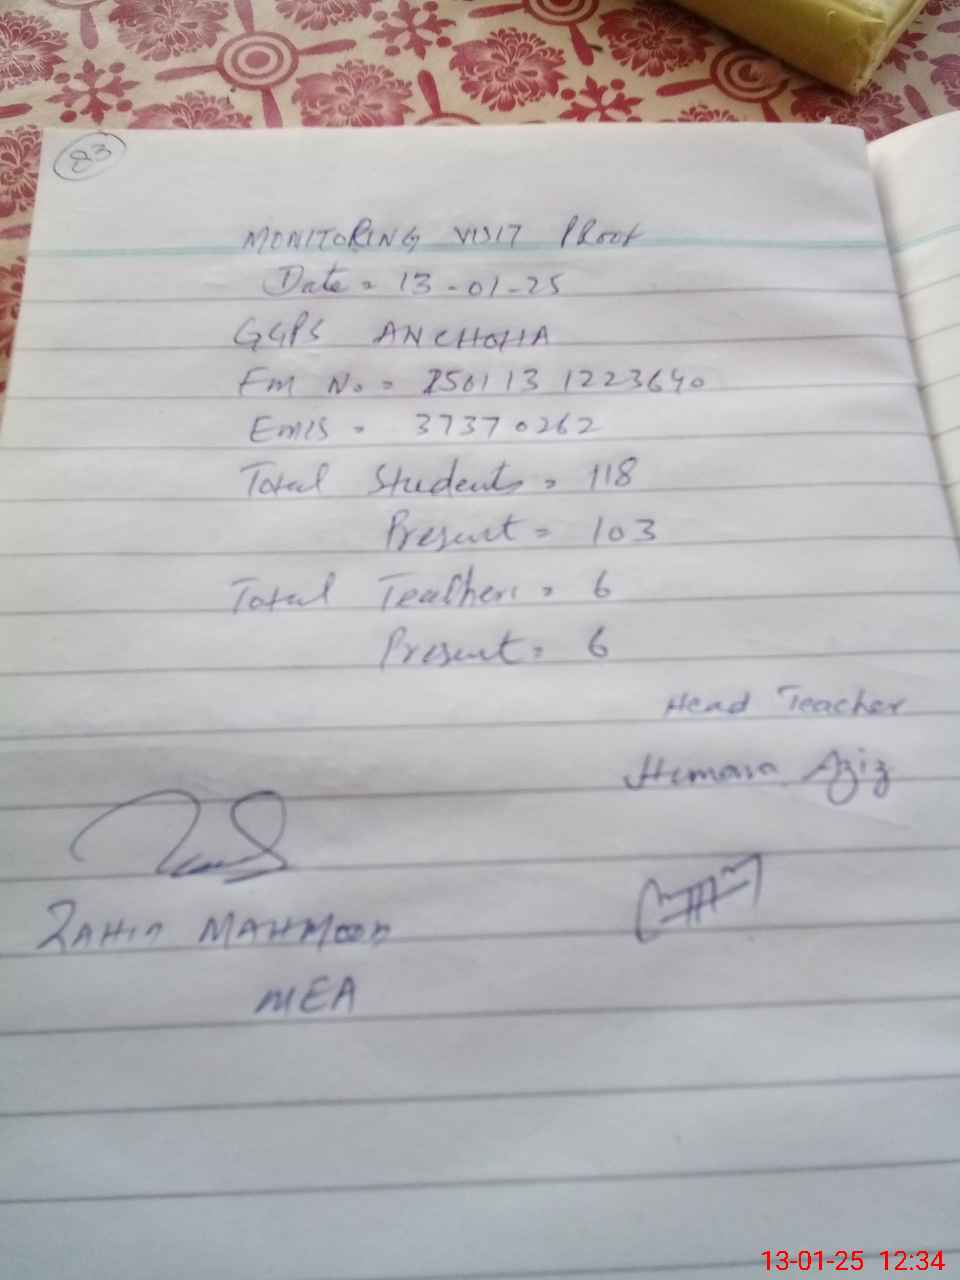 83
MONITORING VISIT PROOF
Date = 13-01-25
GGPS ANCHOHA
Fm No. = 250113 1223640
EMIS = 37370262
Total Students = 118
Present = 103
Total Teachers = 6
Present = 6
Head Teacher
Humaira Aziz
MAHMOOD
MEA
13-01-25 12:34